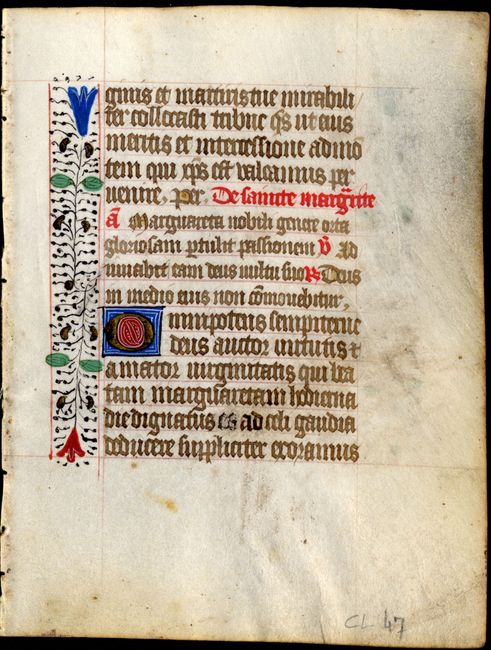 ginis et martiris tue mirabili
ter collocasti tribue qs̄ ut eius
meritis et intercessione ad mō
tem qui xp̄s est valeamus per
uenire, per. De sancte margr̄ite
ā Marguareta nobili genere orta
gloriosam ꝑtulit passionem v̄ Ad
iuuabit eam deus uultu suo R Deus
in medio eius non cōmouebitur,
Omnipotens sempiterne
deus auctor uirtutis et
amator uirginitatis qui bea
tam marguaretam hodierna
die dignatus es ad celi gaudia
deducere suppliciter exoramus
CL 47